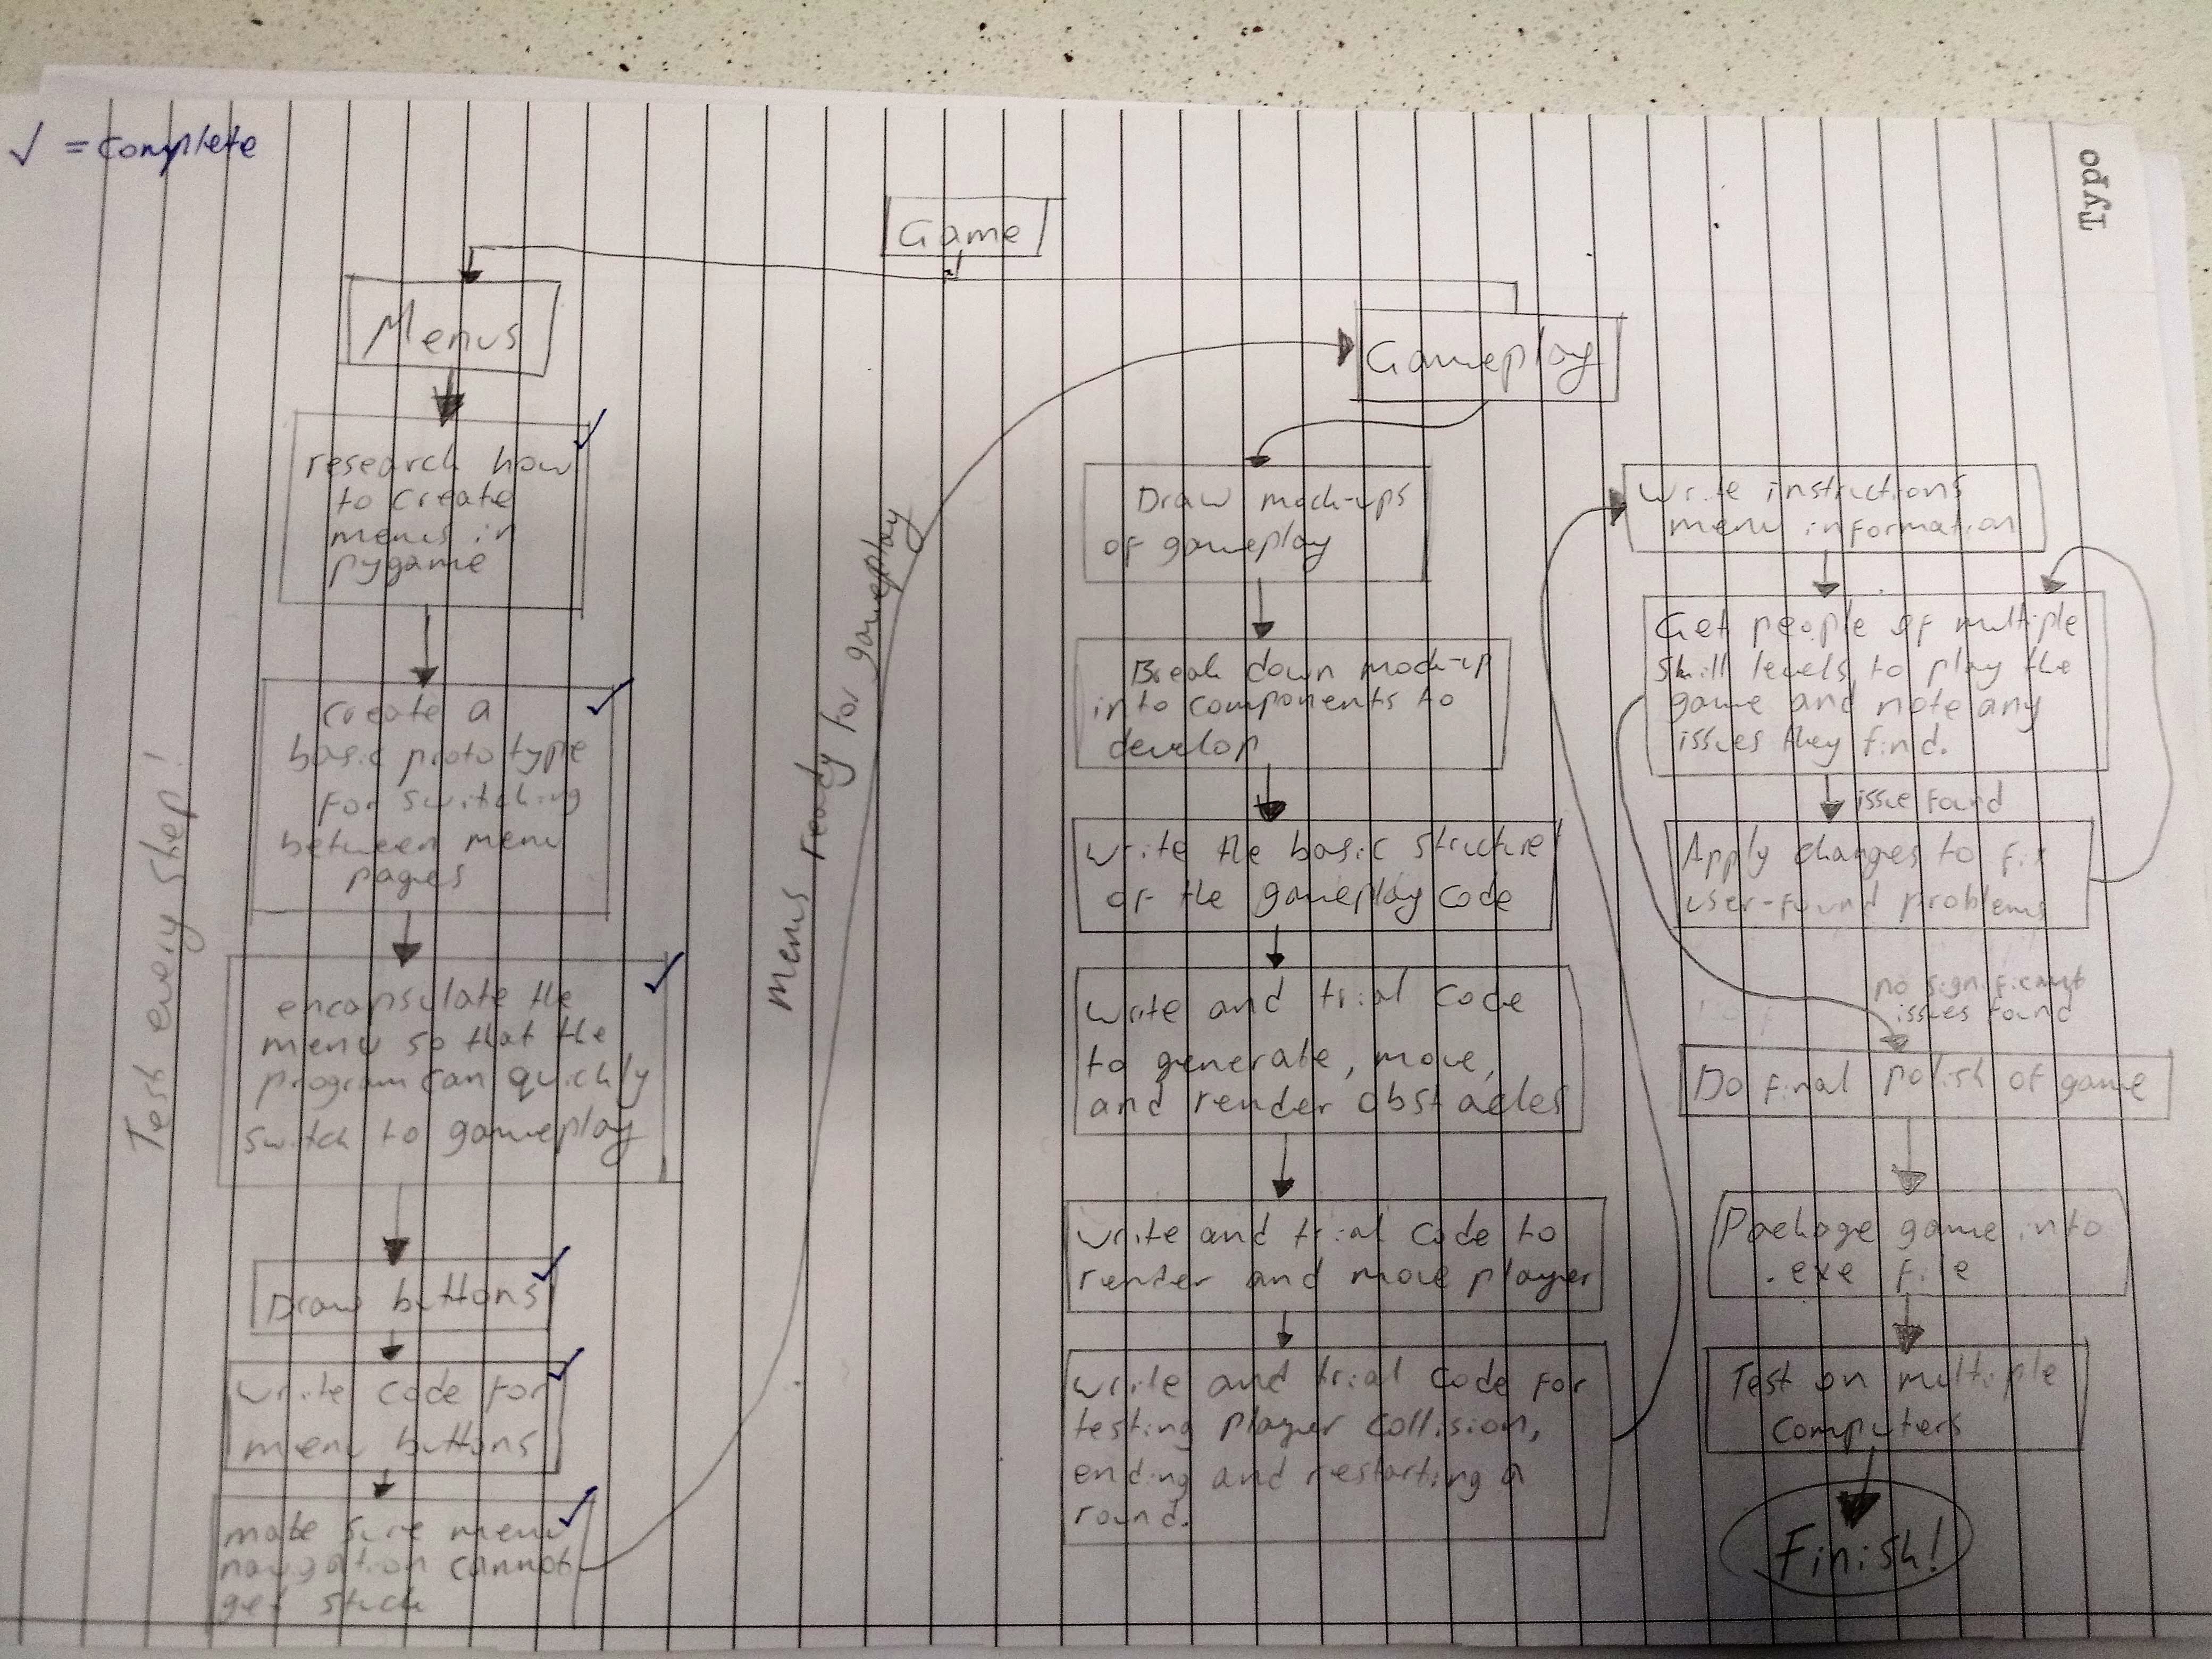 ✓ = complete
Typo
Game
Menus
research how
to create
menus in
pygame
create a
basic prototype
for switching
between menu
pages
encapsulate the
menu so that the
program can quickly
switch to gameplay
Draw buttons
write code for
menu buttons
make sure menu
navigation cannot
get stuck
Test every step!
Menus ready for gameplay
Gameplay
Draw mock-ups
of gameplay
Break down mock-up
into components to
develop
write the basic structure
of the gameplay code
write and trial code
to generate, move,
and render obstacles
write and trial code to
render and move player
write and trial code for
testing player collision,
ending and restarting a
round.
write instructions
menu information
Get people of multiple
skill levels to play the
game and note any
issues they find.
issue found
Apply changes to fix
user-found problems
no significant
issues found
Do final polish of game
Package game into
.exe file
Test on multiple
computers
Finish!